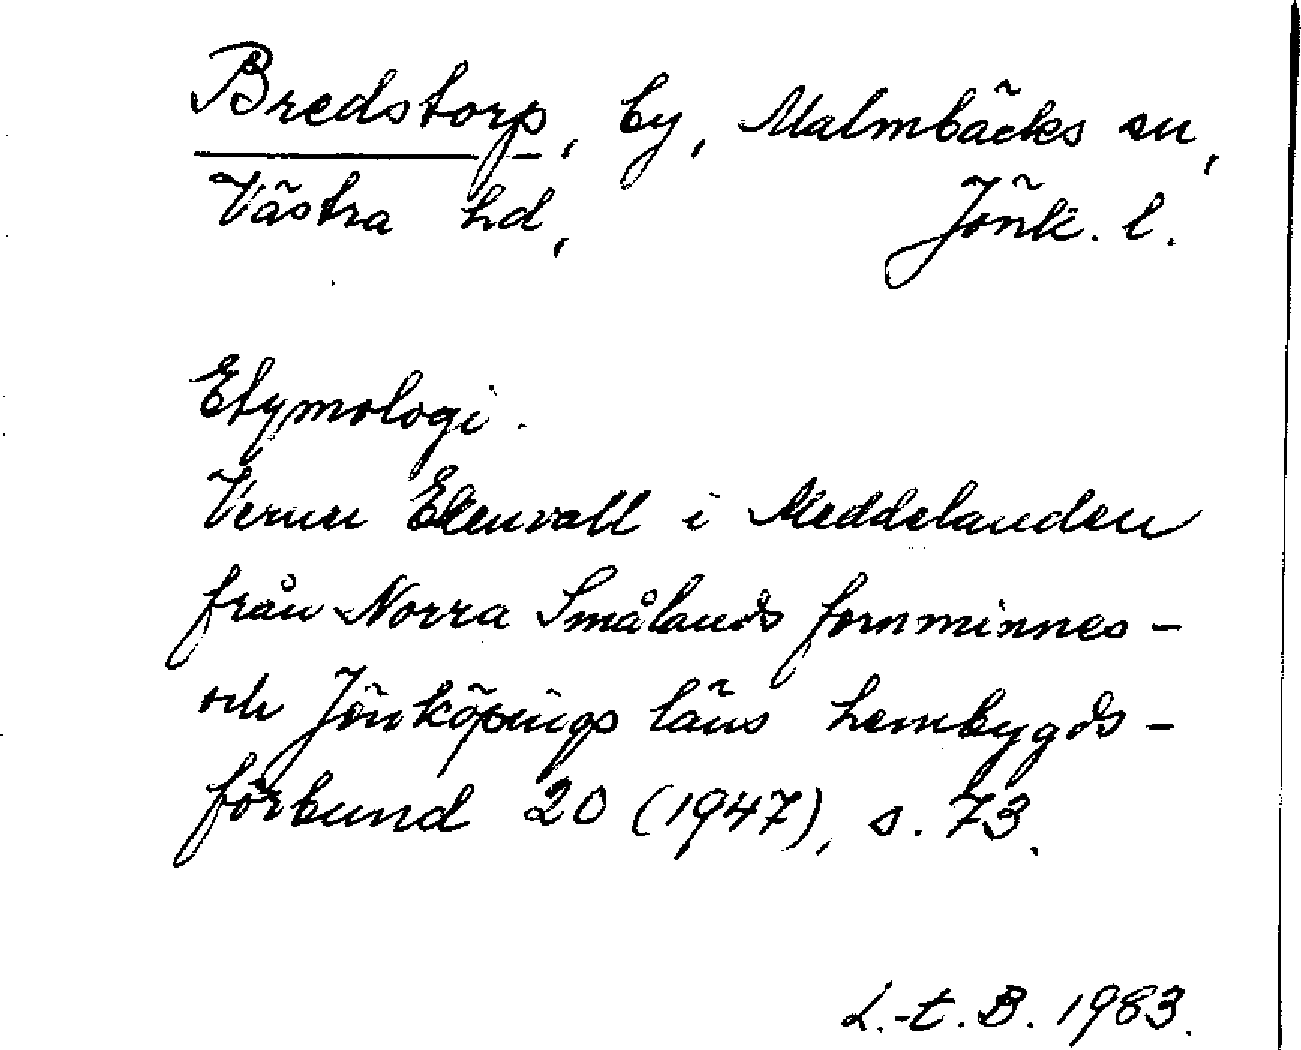 Bredstorp, by, Malmbäcks sn,
Västra hd, Jönk. l.
Etymologi.
Verner Ekenvall i Meddelanden
från Norra Smålands fornminnes-
och Jönköpings läns hembygds-
förbund 20 (1947), s. 73.
L.-t. B. 1983.